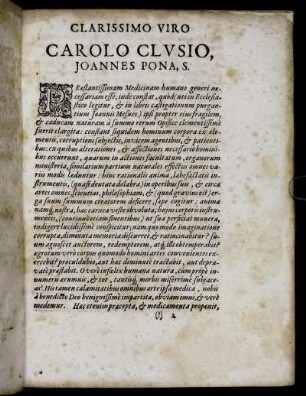 CLARISSIMO VIRO
CAROLO CLVSIO,
JOANNES PONA, S.
PRæstantissimam Medicinam humano generi ne-
cessariam esse, inde constat, quòd, ut est in Ecclesia-
stico legitur, & in libris castigationum purgan-
tium Ioannis Mesues) ipsi propter eius fragilem,
& caducam naturam à summo rerum Opifice clementissimè
fuerit elargita: constant siquidem hominum corpora ex ele-
mentis, corruptioni subjectis, invicem agentibus, & patientibus:
ex quibus alterationes, & affectiones necessariò homini-
bus occurrunt, quarum in actiones facultatum, organorum
ministeria, similarium partium naturales effectus omnes va-
riis modis læduntur: hinc rationalis anima, labefactatis in-
strumentis, (quasi dentata delabra) in operibus suis, & circa
artes omnes, scientias, philosophiam, & (quod gravius est) er-
ga suum summum creatorem desicere, sæpe cogitur: anima
namq; nostra, hac caraca veste obvoluta, huius corporis instru-
mentis, (continuè etiam fluentibus) ne sua perficiat munera,
indigere lucidissimè conspicitur; nam quo modo imaginatione
corrupta, diminuta memoria discurret, & ratiocinabitur? su-
um agnoscet auctorem, redemptorem, atq; illi obtemperabit?
ægrotum verò corpus quomodo homini artes convenientes ex-
ercebit? proculdubio, aut hæc diminutè præstabit, aut depra-
vatè præstabit. O verè infelix humana natura, cùm propè in-
numeris ærumnis, & tot, tantisq; morbis miserrimè subjace-
at! His tamen calamitatibus omnibus arte ipsa medica, nobis
à benedicto Deo benignissimè impartita, obviam imus, & verè
medemur. Hæc etenim præcepta, & medicamenta proponit,
(?) 2